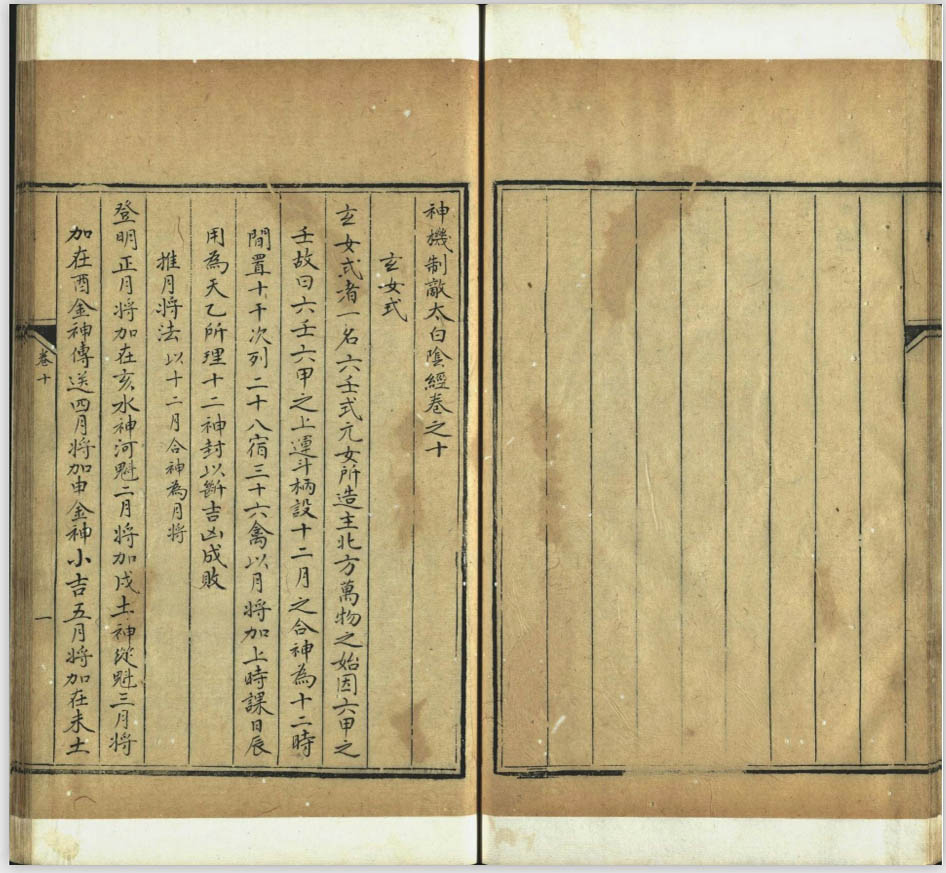 神機制敵太白陰經卷之十
玄女式
玄女式者一名六壬式元女所造主北方萬物之始因六甲之
壬故曰六壬六甲之上運斗柄設十二月之合神為十二時
間置十干次列二十八宿三十六禽以月將加上時課日辰
用為天乙所理十二神封以斷吉凶成敗
推月將法 以十二月合神為月將
登明正月將加在亥水神河魁二月將加戌土神從魁三月將
加在酉金神傳送四月將加申金神小吉五月將加在未土
卷十
一